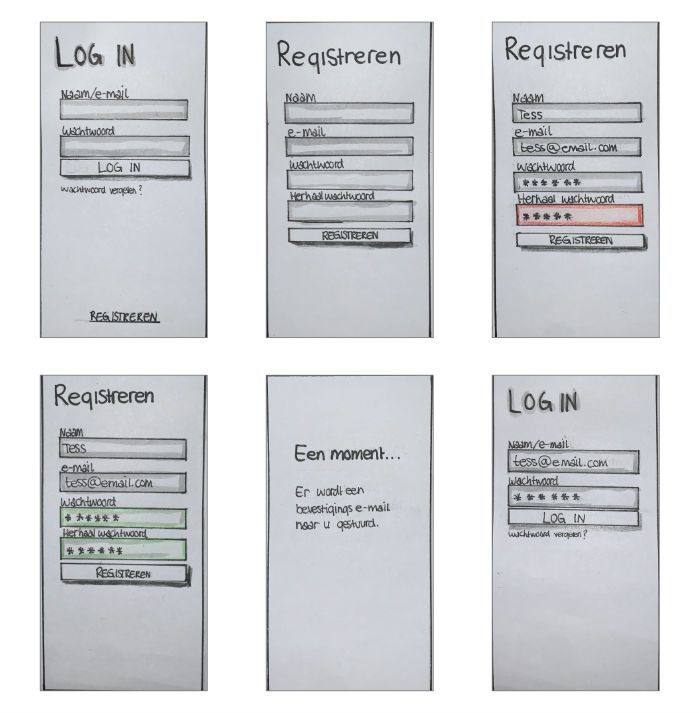 LOG IN
Naam/e-mail
Wachtwoord
LOG IN
Wachtwoord vergeten?
REGISTREREN
Registreren
Naam
e-mail
Wachtwoord
Herhaal wachtwoord
REGISTREREN
Registreren
Naam
Tess
e-mail
tess@email.com
Wachtwoord
******
Herhaal wachtwoord
*****
REGISTREREN
Registreren
Naam
Tess
e-mail
tess@email.com
Wachtwoord
******
Herhaal wachtwoord
******
REGISTREREN
Een moment...
Er wordt een
bevestigings e-mail
naar u gestuurd.
LOG IN
Naam/e-mail
tess@email.com
Wachtwoord
******
LOG IN
Wachtwoord vergeten?